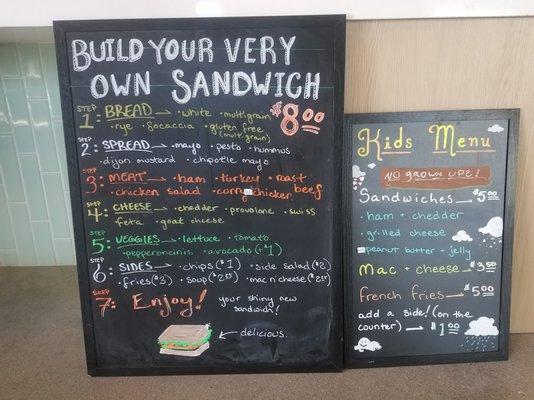 BUILD YOUR VERY
OWN SANDWICH
STEP 1: BREAD → • white • multigrain
• rye • focaccia • gluten free
(multigrain)
$8.00
STEP 2: SPREAD → • mayo • pesto • hummus
• dijon mustard • chipotle mayo
STEP 3: MEAT → • ham • turkey • roast beef
• chicken salad • curry chicken
STEP 4: CHEESE → • chedder • provolone • swiss
• feta • goat cheese
STEP 5: VEGGIES → • lettuce • tomato
• pepperoncinis • avocado (+$1)
STEP 6: SIDES → • chips ($1) • side salad ($2)
• fries ($3) • soup
• mac n' cheese
STEP 7: Enjoy! your shiny new
sandwich!
← delicious.
Kids Menu
NO GROWN UPZ!
Sandwiches → $5.00
• ham + chedder
• grilled cheese
• peanut butter + jelly
Mac + cheese → $3.50
French fries → $5.00
add a side! (on the
counter) → $1.00